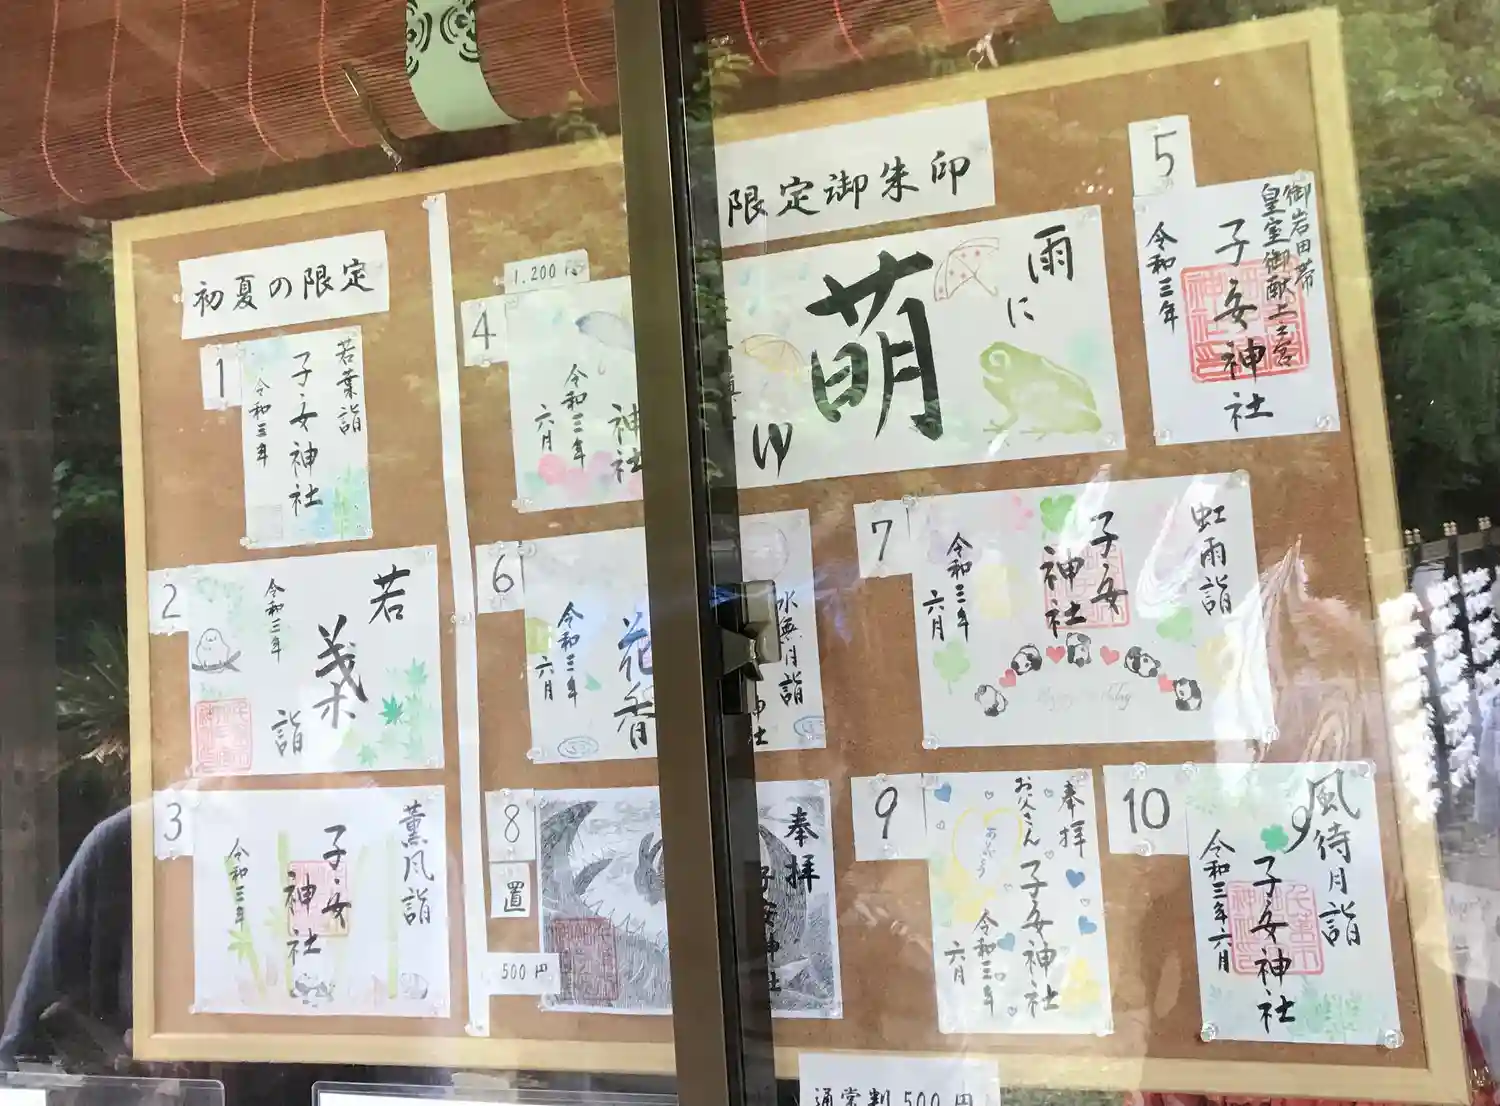 限定御朱印
初夏の限定
1
若葉詣
子安神社
令和三年
2
若
葉
詣
令和三年
3
薫風詣
子安神社
令和三年
1,200円
4
雨
に
萌
ゆ
神社
令和三年
六月
5
御岩田帯
皇室御献上之宮
子安神社
令和三年
6
水無月詣
花香
神社
令和三年
六月
7
虹雨詣
子安
神社
令和三年
六月
8
置
500円
奉拝
子安神社
9
奉拝
お父さん
ありがとう
子安神社
令和三年
六月
10
風待月詣
子安神社
令和三年六月
通常判500円